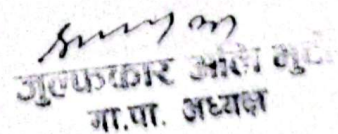 जुल्फकार अलि भुट्टो
गा.पा. अध्यक्ष